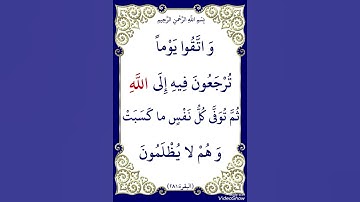 بِسْمِ اللَّهِ الرَّحْمَنِ الرَّحِيمِ
وَ اتَّقُوا يَوْماً
تُرْجَعُونَ فِيهِ إِلَى اللَّهِ
ثُمَّ تُوَفَّى كُلُّ نَفْسٍ ما كَسَبَتْ
وَ هُمْ لا يُظْلَمُونَ
(البقرة:٢٨١)
VideoShow